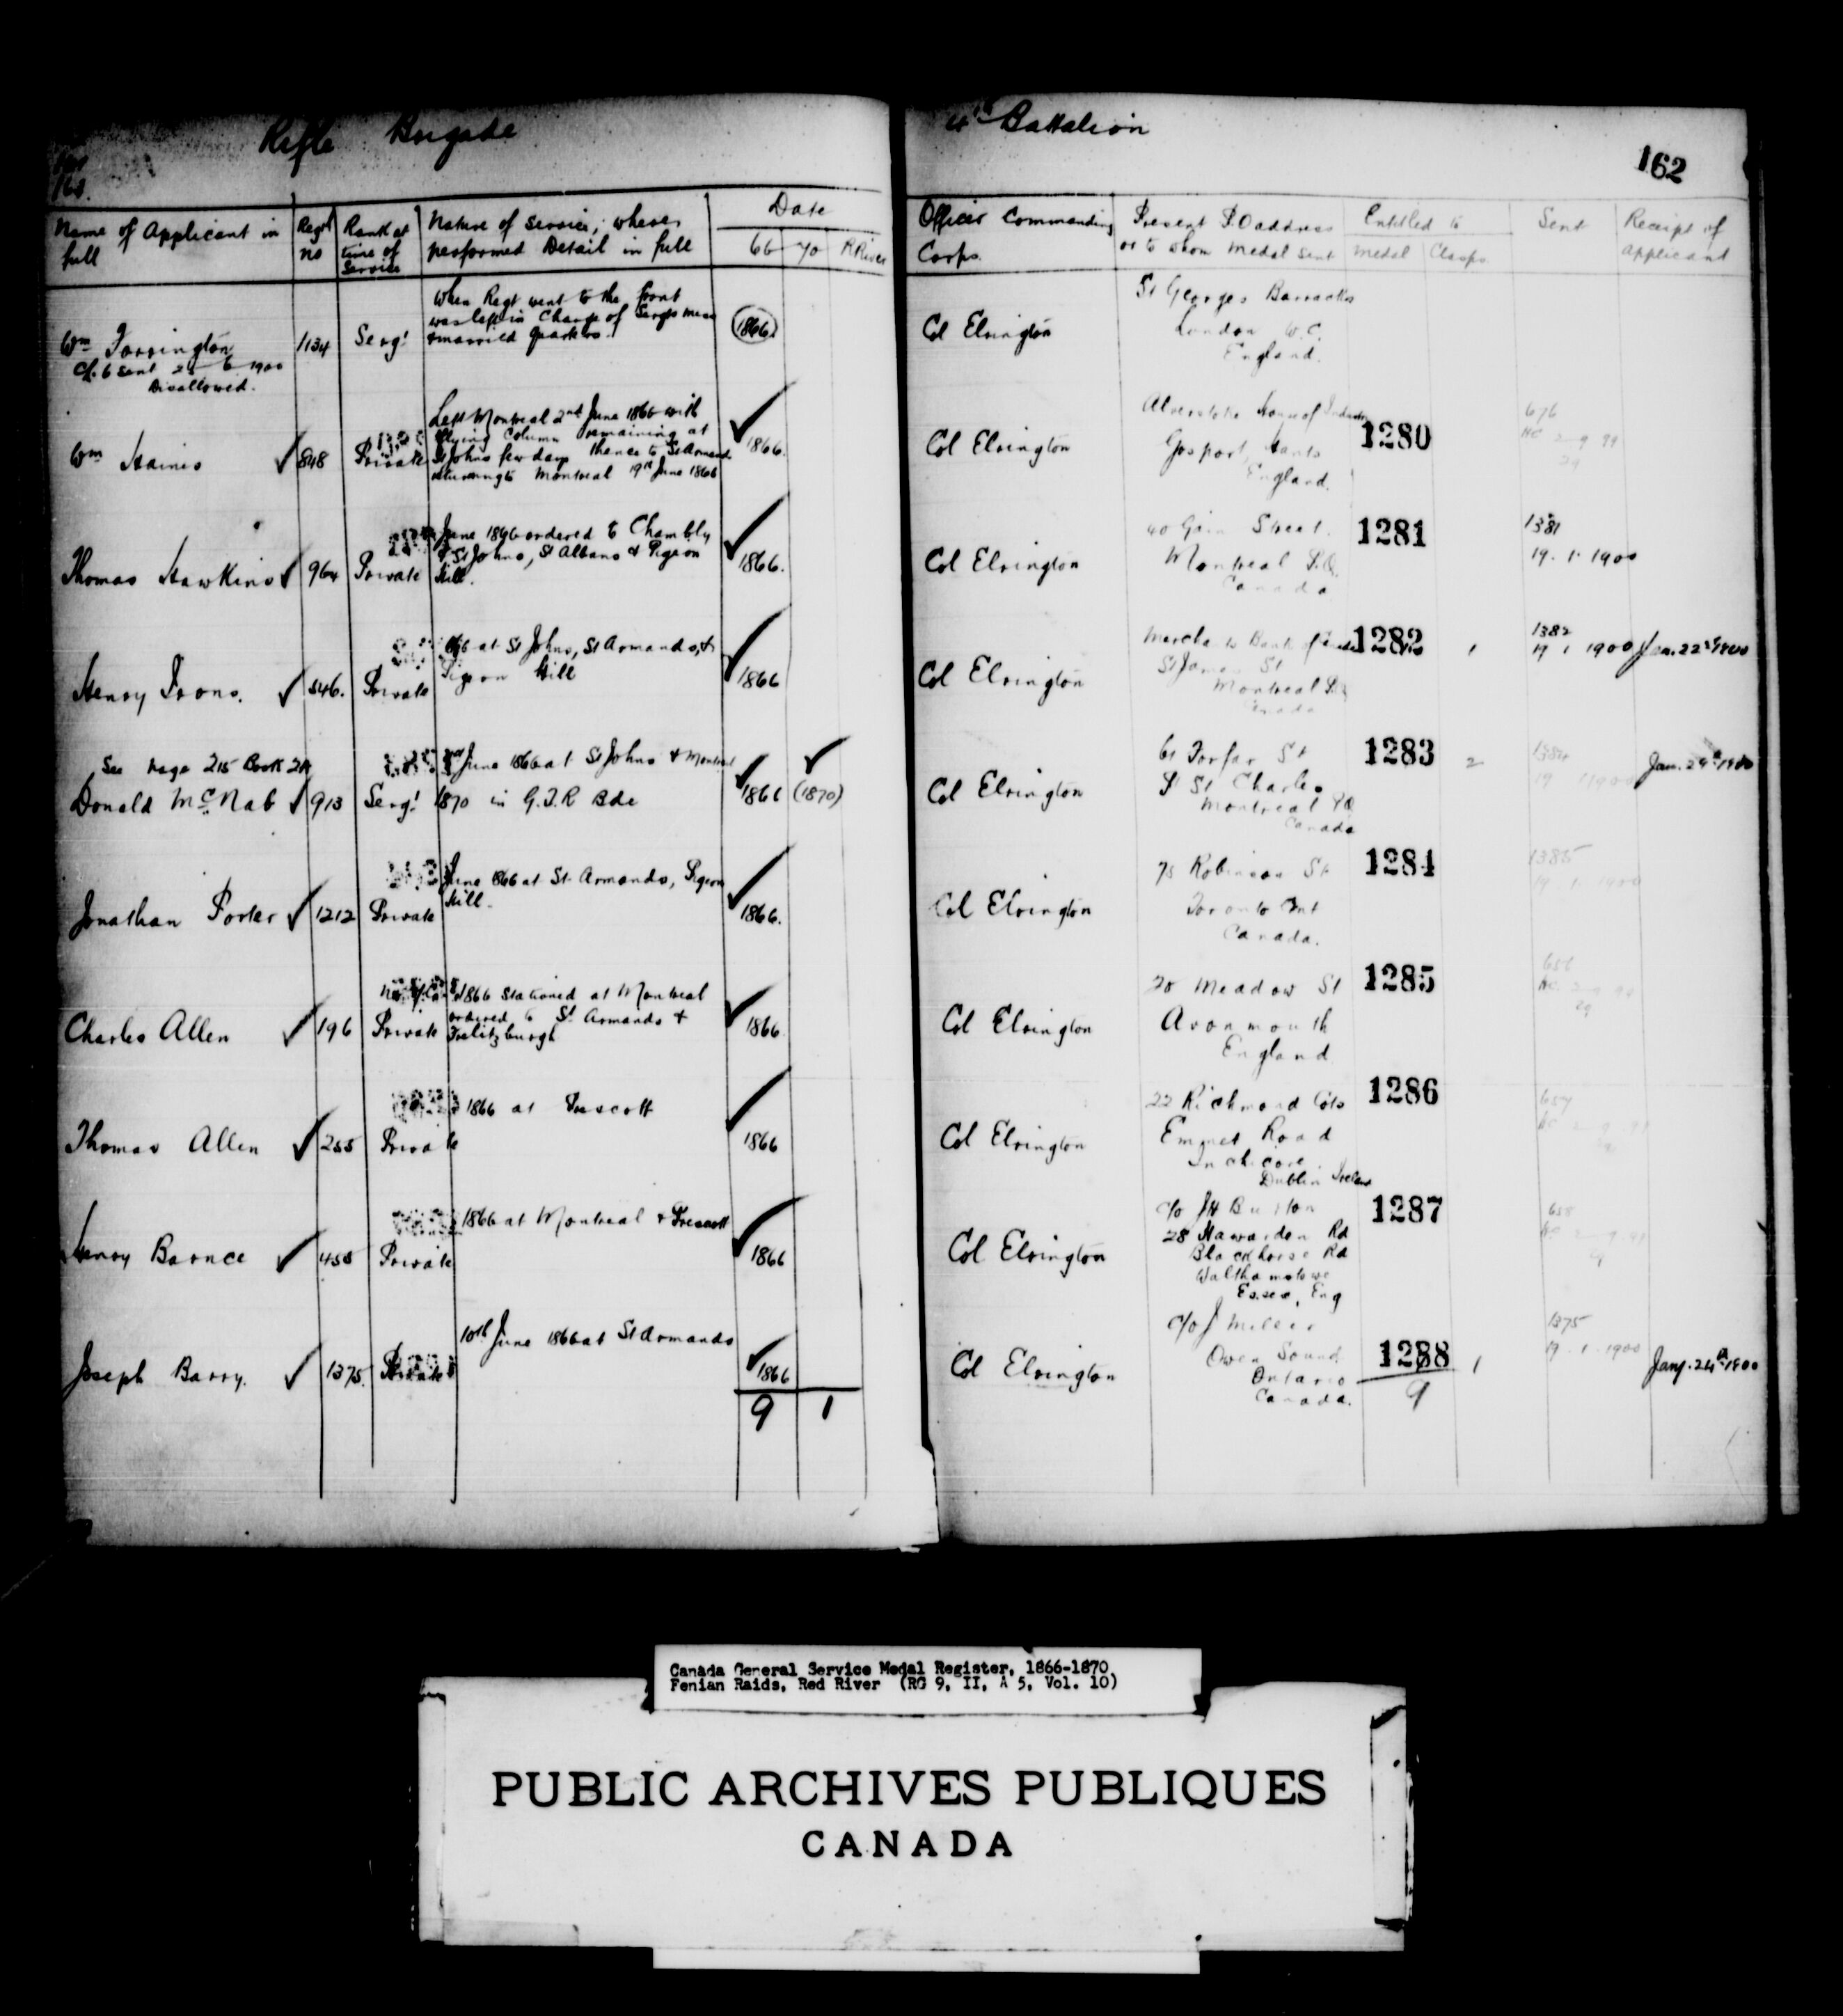 Rifle Brigade
4th Battalion
162
Name of Applicant in full
Regtl no
Rank at time of Service
Nature of Service, where performed Detail in full
Date
66 70 R River
Officer Commanding Corps.
Present P.O address or to whom medal sent
Entitled to
Medal Clasps
Sent
Receipt of Applicant
Wm Torrington
C/. 6 sent 25 6 1900
Disallowed.
1134
Sergt
When Regt went to the front
was left in Charge of Sergts mess
& married Quarters.
1866.
Col Elrington
St Georges Barracks
London W.C.
England.
Wm Haines
848
Private
Left Montreal 2nd June 1866 with
flying Column remaining at
St Johns few days thence to St Armand
returning to Montreal 19th June 1866
1866.
Col Elrington
Alverstoke House of
Gosport, Hants
England.
1280
676
HC 2 9 99
29
Thomas Hawkins
964
Private
June 1866 ordered to Chambly
& St Johns, St Albans & Pigeon
Hill.
1866.
Col Elrington
40 Gain Street.
Montreal P.Q.
Canada
1281
1381
19. 1. 1900
Henry Irons.
546.
Private
at St Johns, St Armands, &
Pigeon Hill
1866
Col Elrington
to Bank of
St James St
Montreal P.Q
Canada
1282
1
1382
19 1 1900
Jan. 22nd 1900
See page 215 Book 2A
Donald McNab
913
Sergt
June 1866 at St Johns & Montreal
1870 in G.T.R Bde
1866 (1870)
Col Elrington
61 Forfar St
Pt St Charles
Montreal P.Q
Canada
1283
2
1384
19 1 1900
Jan. 24th 1900
Jonathan Porter
1212
Private
June 1866 at St Armands, Pigeon
Hill.
1866.
Col Elrington
75 Robinson St
Toronto Ont
Canada.
1284
1385
19. 1. 1900
Charles Allen
196
Private
1866 stationed at Montreal
ordered to St Armands &
Frelitzburgh
1866
Col Elrington
20 Meadow St
Avonmouth
England
1285
656
HC 2 9 99
29
Thomas Allen
255
Private
1866 at Prescott
1866
Col Elrington
22 Richmond Cots
Emmet Road
Inchicore
Dublin Ireland
1286
657
Henry Barnce
455
Private
1866 at Montreal & Prescott
1866
Col Elrington
c/o JH Burton
28 Hawarden Rd
Blackhorse Rd
Walthamstowe
Essex, Eng
1287
658
Joseph Barry.
1375.
Private
10th June 1866 at St Armands
1866
Col Elrington
c/o J Miller
Owen Sound
Ontario
Canada.
1288
1
1375
19. 1. 1900
Jany. 24th 1900
9 1
9
Canada General Service Medal Register, 1866-1870,
Fenian Raids, Red River (RG 9, II, A 5, Vol. 10)
PUBLIC ARCHIVES PUBLIQUES
CANADA